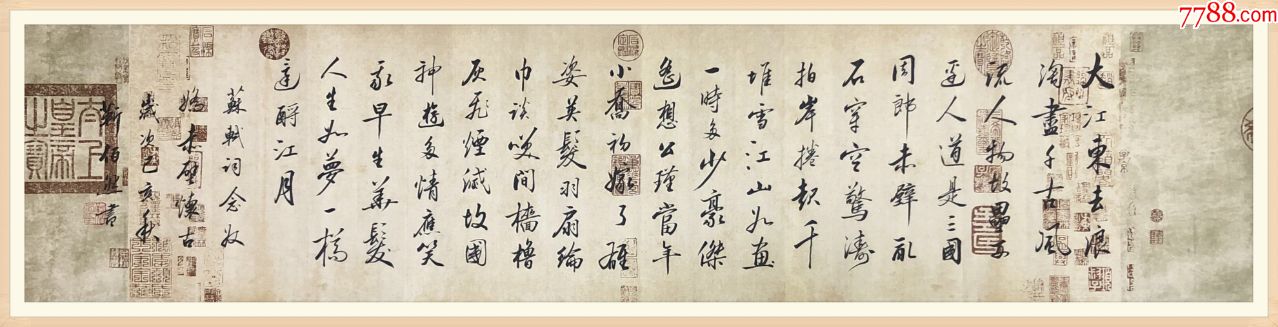 7788.com
大江東去浪
淘盡千古風
流人物故壘西
邊人道是三國
周郎赤壁亂
石穿空驚濤
拍岸捲起千
堆雪江山如畫
一時多少豪傑
遙想公瑾當年
小喬初嫁了雄
姿英髮羽扇綸
巾談笑間檣櫓
灰飛煙滅故國
神遊多情應笑
我早生華髮
人生如夢一樽
還酹江月
蘇軾詞念奴
嬌赤壁懷古
歲次己亥秋
靳佰書
太上
皇帝
之寶